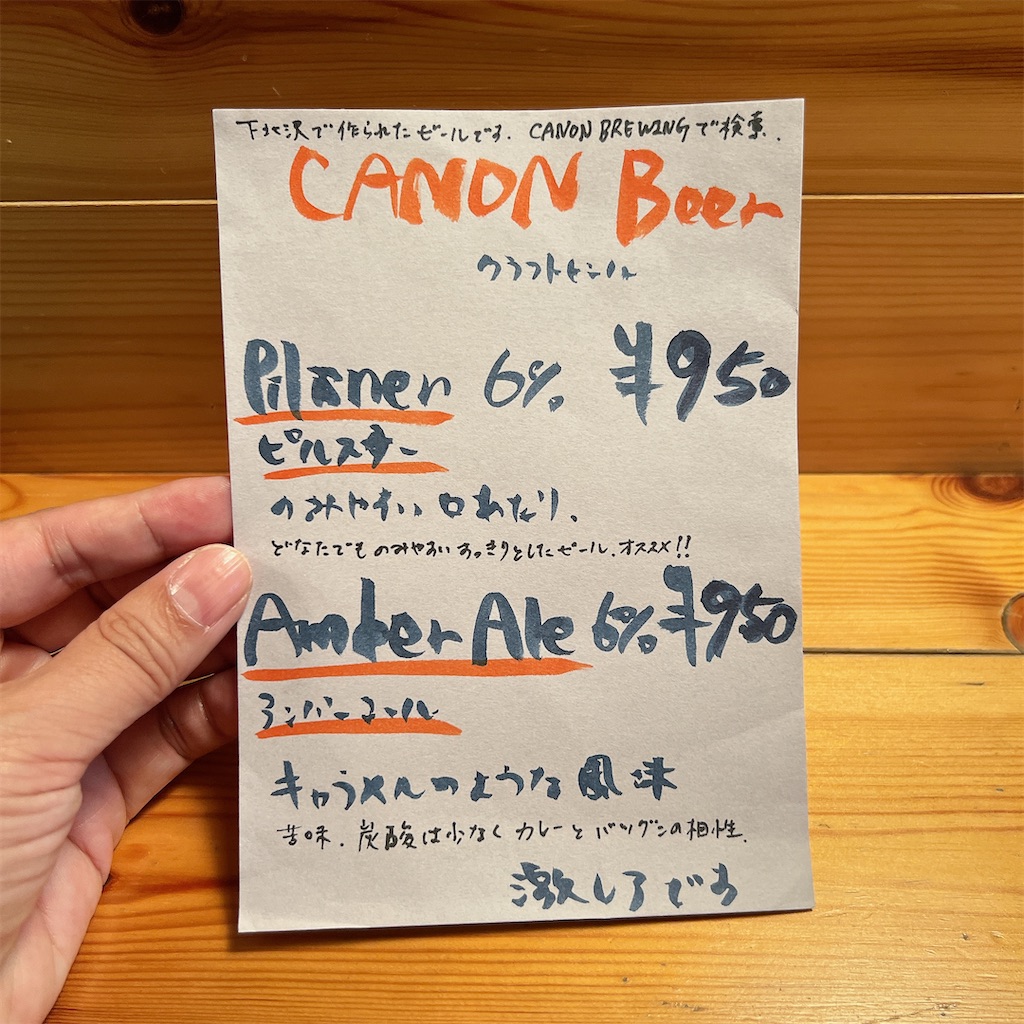 下北沢で作られたビールです. CANON BREWINGで検索.
CANON Beer
クラフトビール
Pilsner 6% ¥950
ピルスナー
のみやすい口あたり.
どなたでものみやすいすっきりとしたビール.オススメ!!
Amber Ale 6% ¥950
アンバーエール
キャラメルのような風味
苦味.炭酸は少なくカレーとバツグンの相性.
激レアです